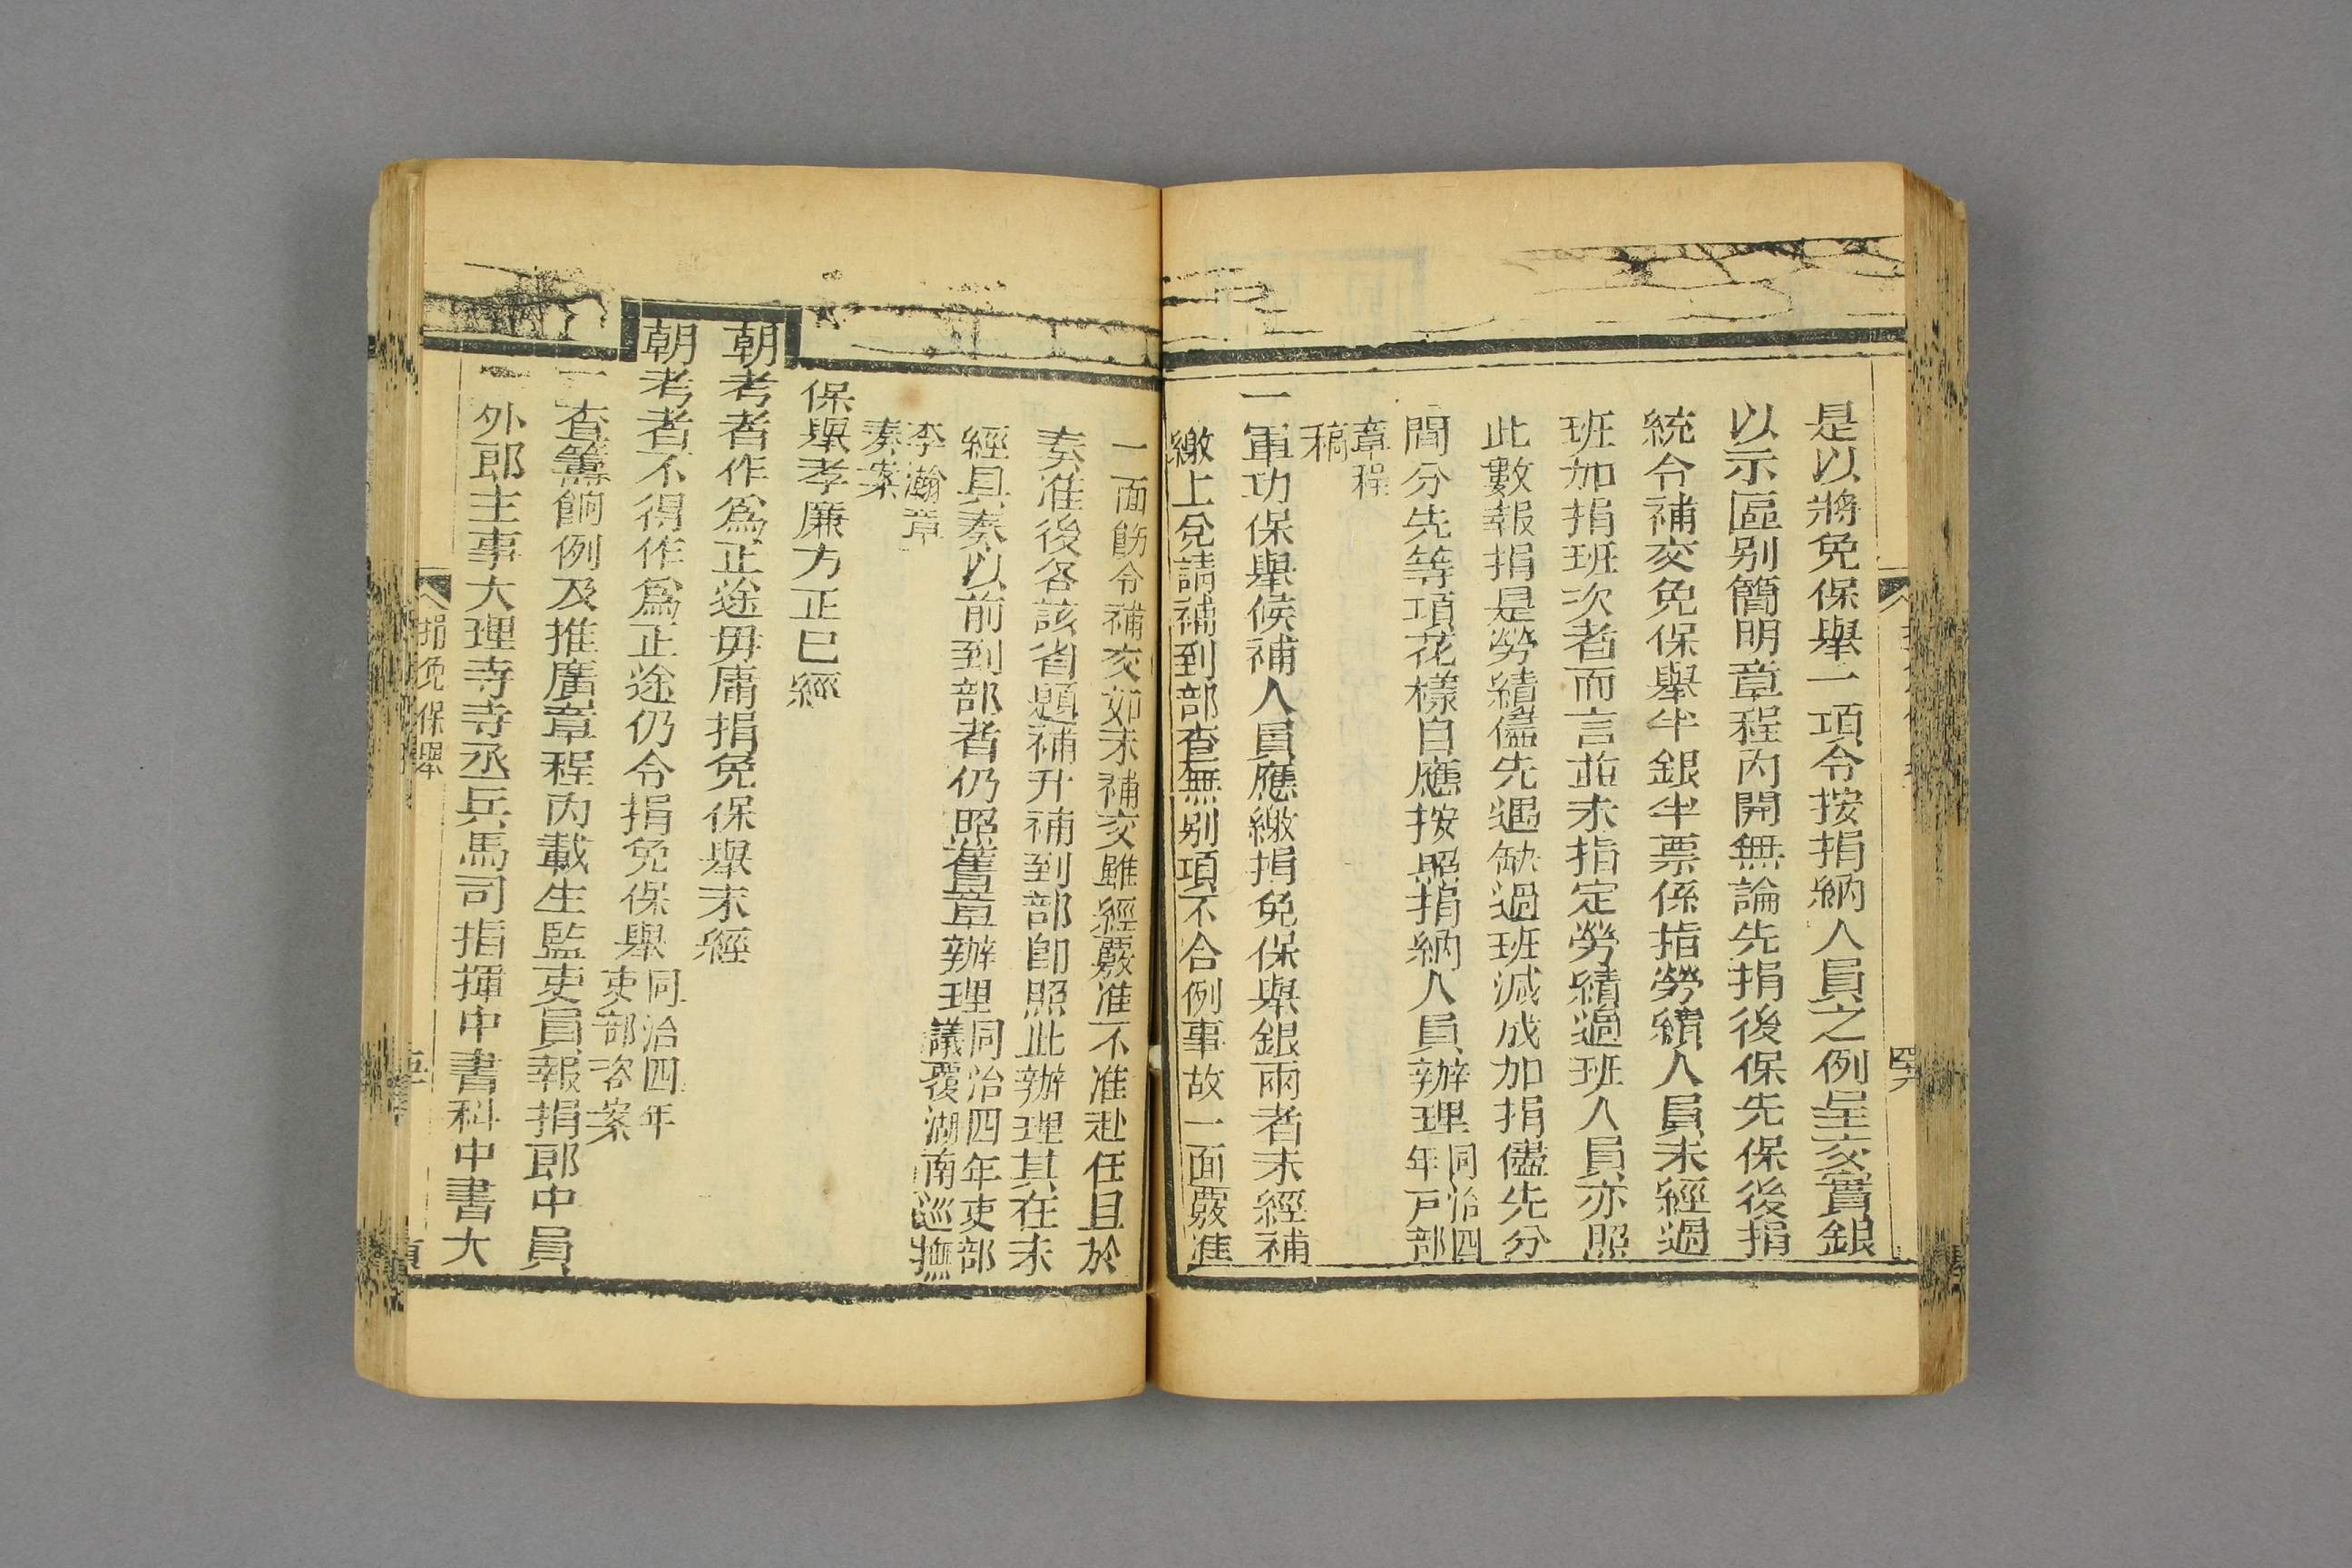 是以將免保舉一項令按捐納人員之例呈交實銀
以示區别簡明章程內開無論先捐後保先保後捐
統令補交免保舉半銀半票係指勞績人員未經過
班加捐班次者而言並未指定勞績過班人員亦照
此數報捐是勞績儘先遇缺過班減成加捐儘先分
間分先等項花樣自應按照捐納人員辦理同治四
年戶部
章程
稿
一軍功保舉候補人員應繳捐免保舉銀兩者未經補
繳上兌請補到部查無别項不合例事故一面覈准
一面飭令補交如未補交雖經覈准不准赴任且於
奏准後各該省題補升補到部卽照此辦理其在未
經具奏以前到部者仍照舊章辦理同治四年吏部
議覆湖南巡撫
李瀚章
奏案
保舉孝廉方正已經
朝考者作爲正途毋庸捐免保舉未經
朝考者不得作爲正途仍令捐免保舉同治四年
吏部咨案
一查籌餉例及推廣章程內載生監吏員報捐郎中員
外郎主事大理寺寺丞兵馬司指揮中書科中書大
捐免保舉